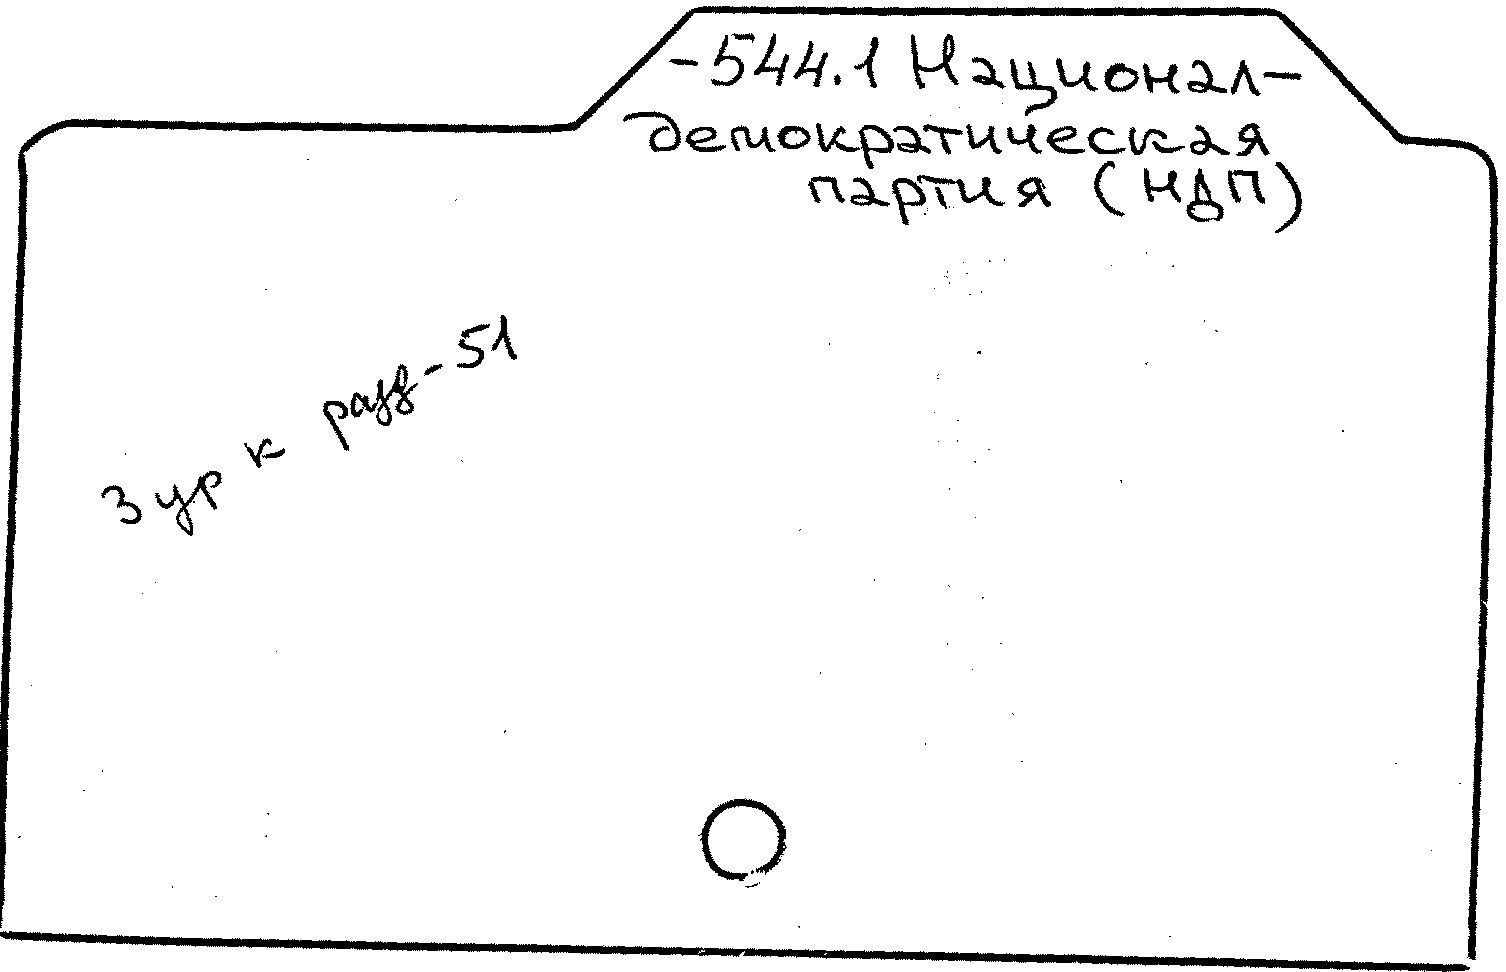 -544.1 Национал-
демократическая
партия (НДП)
3 ур к разд-51